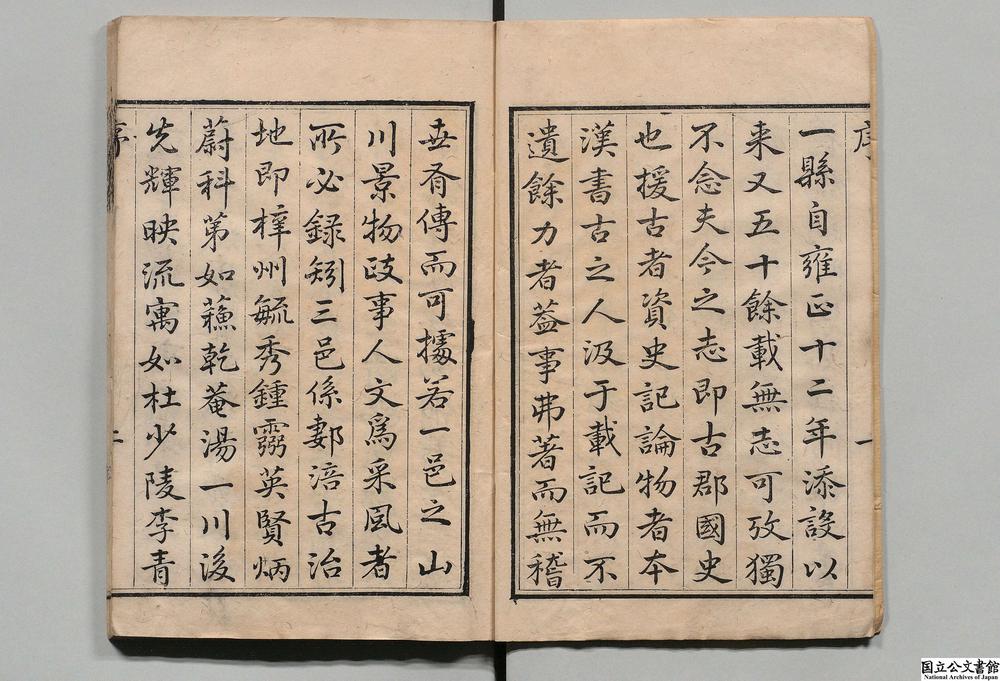 序
一
一縣自雍正十二年添設以
来又五十餘載無志可攷獨
不念夫今之志即古郡國史
也援古者資史記論物者本
漢書古之人汲于載記而不
遺餘力者葢事弗著而無稽
世胥傳而可據若一邑之山
川景物政事人文爲采風者
所必録矧三邑係鄠涪古治
地即梓州毓秀鍾靈英賢炳
蔚科第如蘓乾菴湯一川後
先輝映流寓如杜少陵李青
序
二
国立公文書館
National Archives of Japan